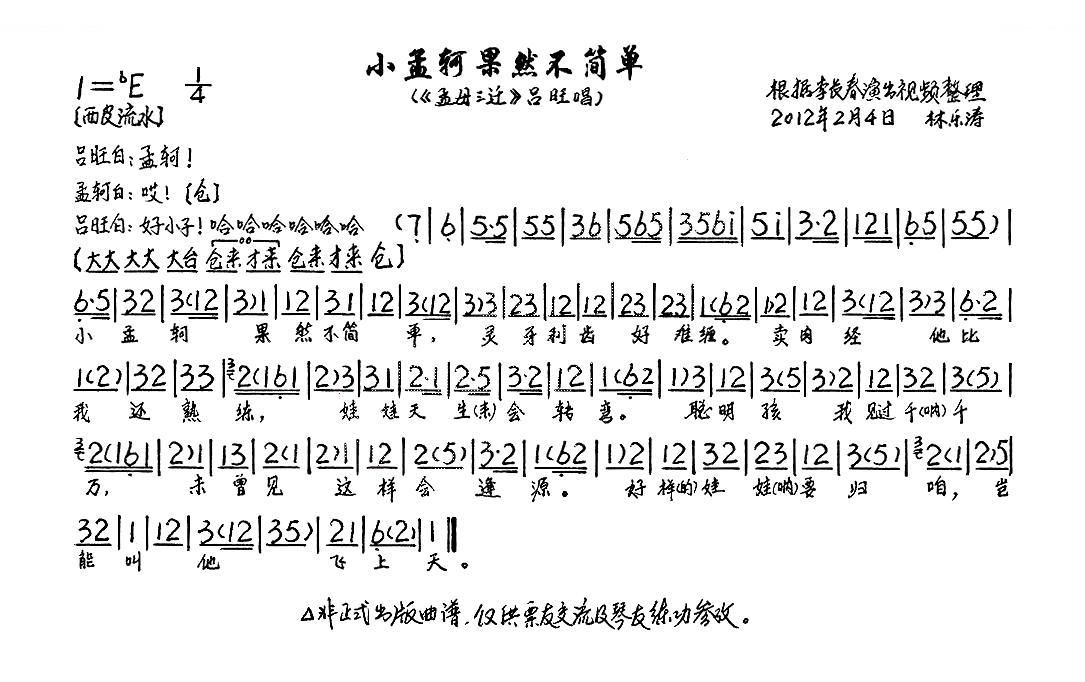 小孟轲果然不简单
(《孟母三迁》吕旺唱)
1=♭E 1/4
[西皮流水]
根据李长春演出视频整理
2012年2月4日 林乐涛
吕旺白:孟轲!
孟轲白:哎![仓]
吕旺白:好小子!哈哈哈哈哈哈 (7|6|5·5|55|36|565|3561|51|3·2|121|65|55)|
[大大 大大 大台 仓来才来 仓来才来 仓]
6·5|32|3(12|3)1|12|31|12|3(12|3)3|23|12|12|23|23|1(62|1)2|12|3(12|3)3|6·2|
小孟轲果然不简单,灵牙利齿好难缠。卖肉经他比
1(2)|32|33|3 2(161|2)3|31|2·1|2·5|3·2|12|1(62|1)3|12|3(5|3)2|12|32|3(5)|
我还熟练,娃娃天生(来)会转弯。聪明孩我见过千(呐)千
3 2(161|2)1|13|2(1|2)1|12|2(5)|3·2|1(62|1)2|12|32|23|12|3(5)|3 2(1|2)5|
万,未曾见这样会逢源。好样(的)娃娃(呐)要归咱,岂
32|1|12|3(12|35)|21|6(2)|1‖
能叫他飞上天。
△非正式出版曲谱,仅供票友交流及琴友练功参改。